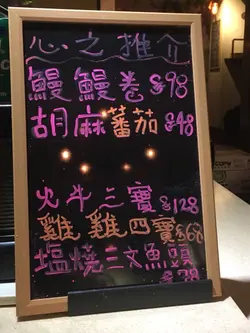 心之推介
鰻鰻卷 $98
胡麻蕃茄 $48
火牛三寶 $128
雞雞四寶 $68
塩燒三文魚頭
$78